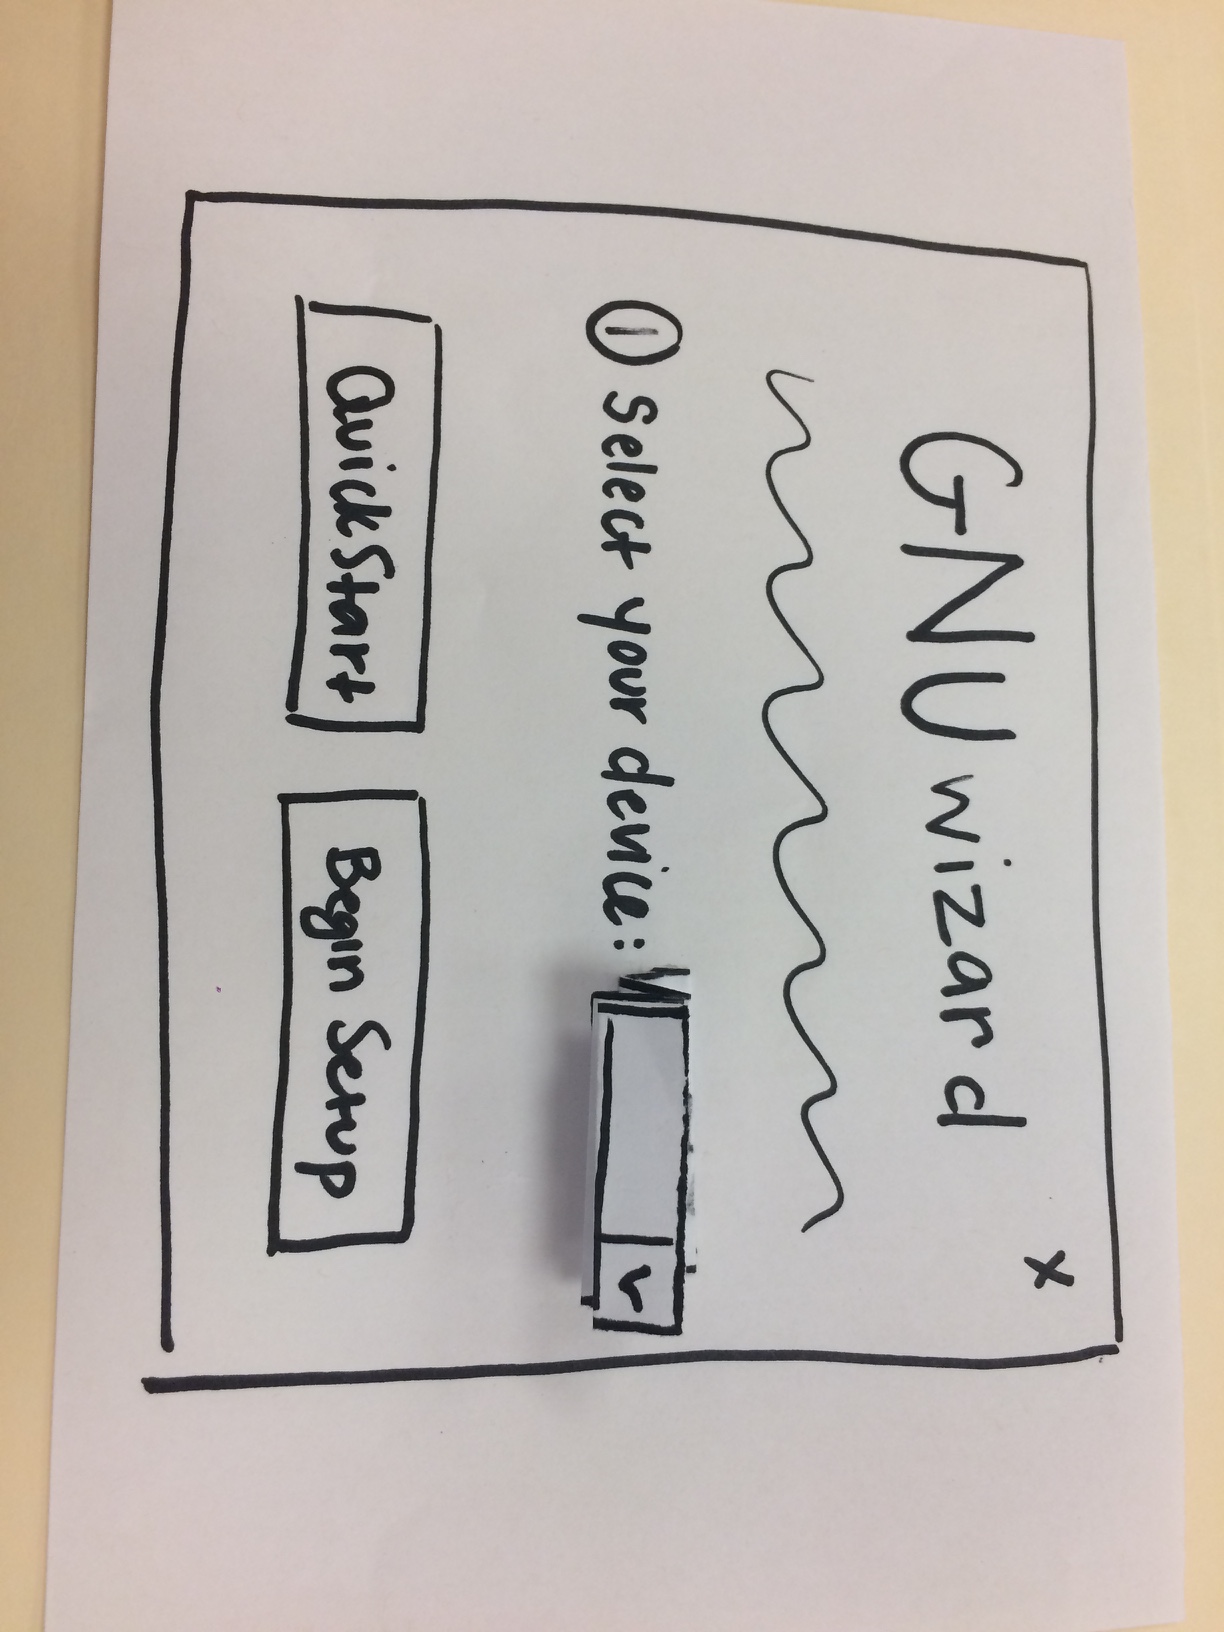 x
GNU wizard
① Select your device:
Quick Start
Begin Setup